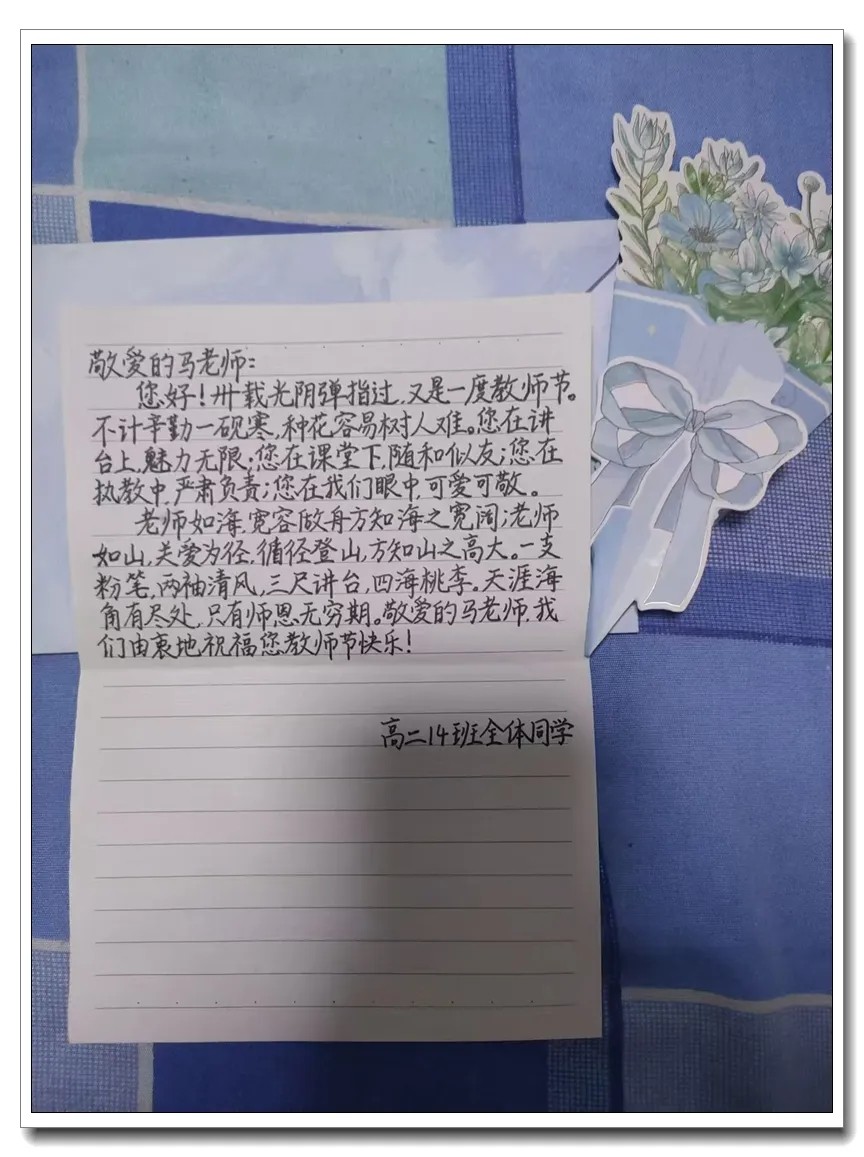 敬爱的马老师:
您好!卅载光阴弹指过,又是一度教师节。
不计辛勤一砚寒,种花容易树人难。您在讲
台上,魅力无限;您在课堂下,随和似友;您在
执教中,严肃负责;您在我们眼中,可爱可敬。
老师如海,宽容做舟方知海之宽阔;老师
如山,关爱为径,循径登山,方知山之高大。一支
粉笔,两袖清风,三尺讲台,四海桃李。天涯海
角有尽处,只有师恩无穷期。敬爱的马老师,我
们由衷地祝福您教师节快乐!
高二14班全体同学